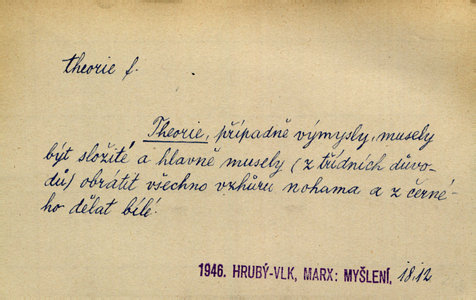 theorie f.
Theorie, případně výmysly, musely
být složité a hlavně musely (z třídních důvo-
dů) obrátit všechno vzhůru nohama a z černé-
ho dělat bílé.
1946. HRUBÝ-VLK, MARX: MYŠLENÍ, 18.12